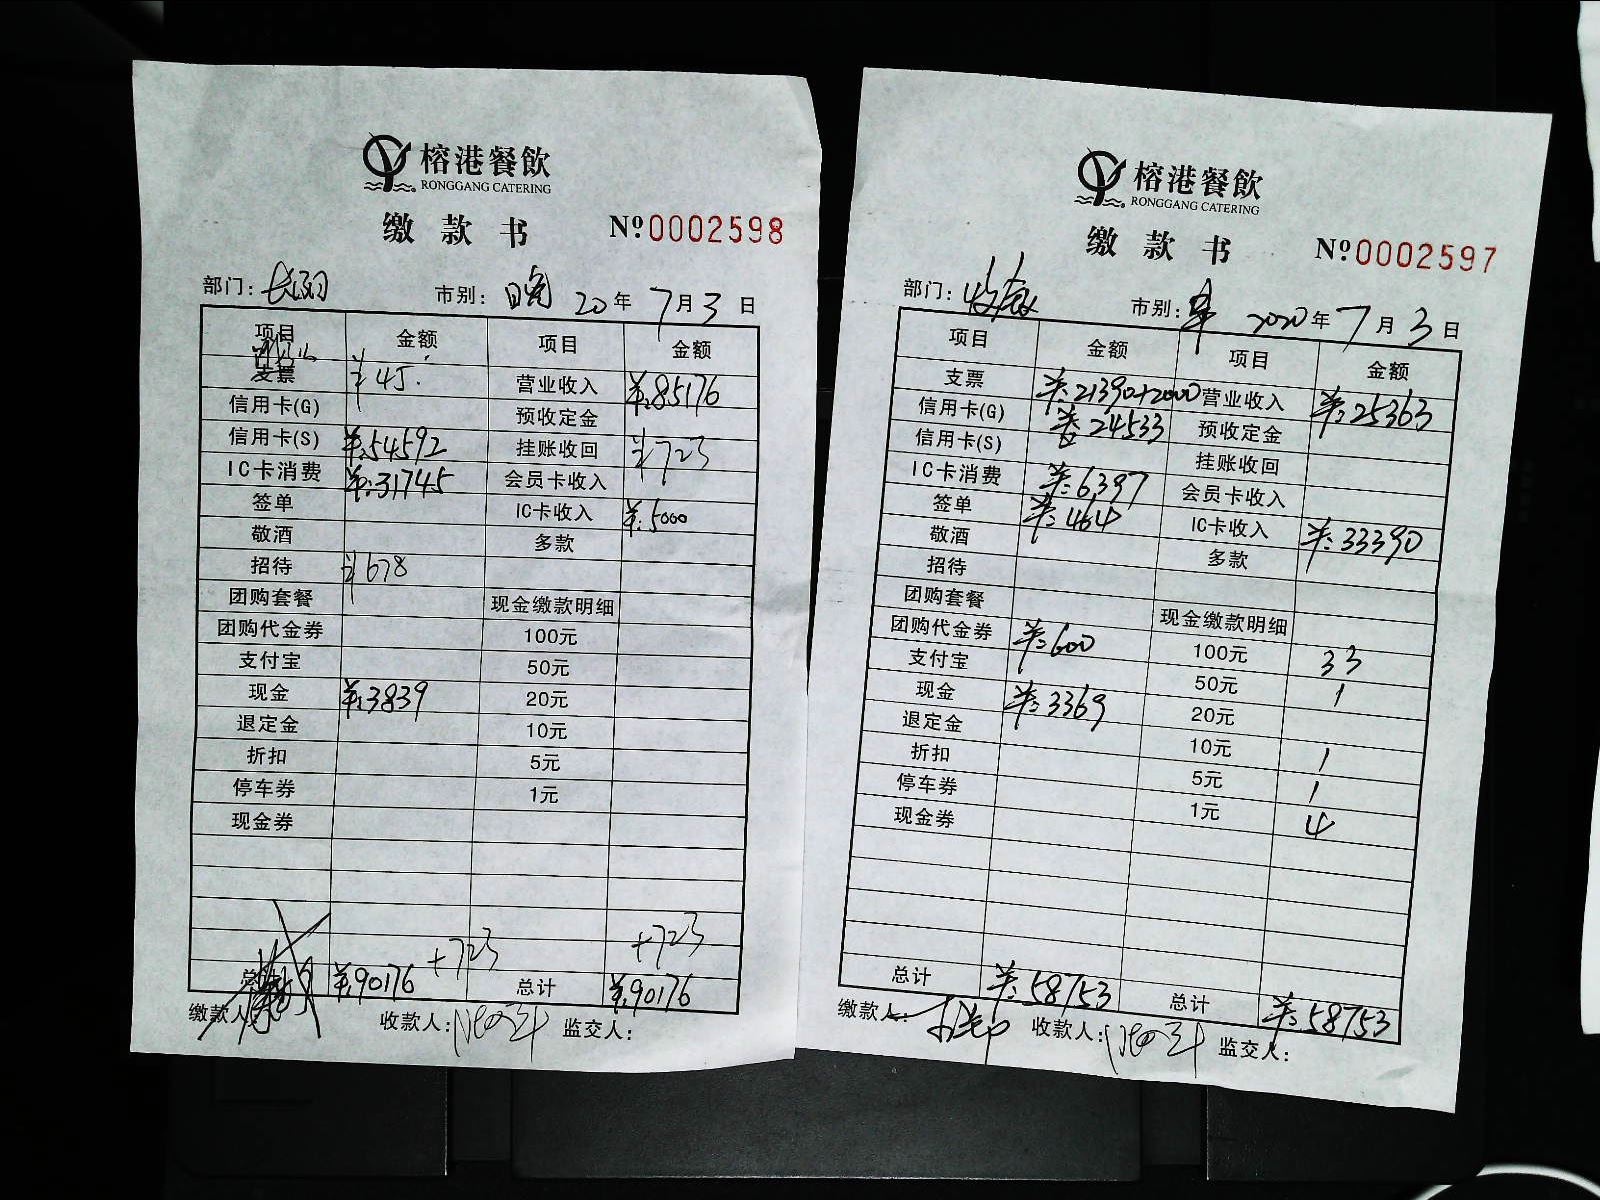 榕港餐飲
RONGGANG CATERING
缴款书 Nº0002598
部门: 市别: 晚 20年7月3日
项目 金额 项目 金额
支票 ¥45. 营业收入 ¥:85176
信用卡(G) 预收定金
信用卡(S) ¥:54592 挂账收回 ¥723
IC卡消费 ¥:31745 会员卡收入
签单 IC卡收入 ¥:5000
敬酒 多款
招待 ¥678
团购套餐 现金缴款明细
团购代金券 100元
支付宝 50元
现金 ¥:3839 20元
退定金 10元
折扣 5元
停车券 1元
现金券
+723 +723
总计 ¥:90176 总计 ¥:90176
缴款人: 收款人: 监交人:
榕港餐飲
RONGGANG CATERING
缴款书 Nº0002597
部门: 市别: 2020年7月3日
项目 金额 项目 金额
支票 ¥:21390+2000 营业收入 ¥:25363
信用卡(G) ¥:24533 预收定金
信用卡(S) 挂账收回
IC卡消费 ¥:6397 会员卡收入
签单 ¥:464 IC卡收入 ¥:33390
敬酒 多款
招待
团购套餐 现金缴款明细
团购代金券 ¥:600 100元 33
支付宝 50元 1
现金 ¥:3369 20元
退定金 10元 1
折扣 5元 1
停车券 1元 4
现金券
总计 ¥:58753 总计 ¥:58753
缴款人: 收款人: 监交人: